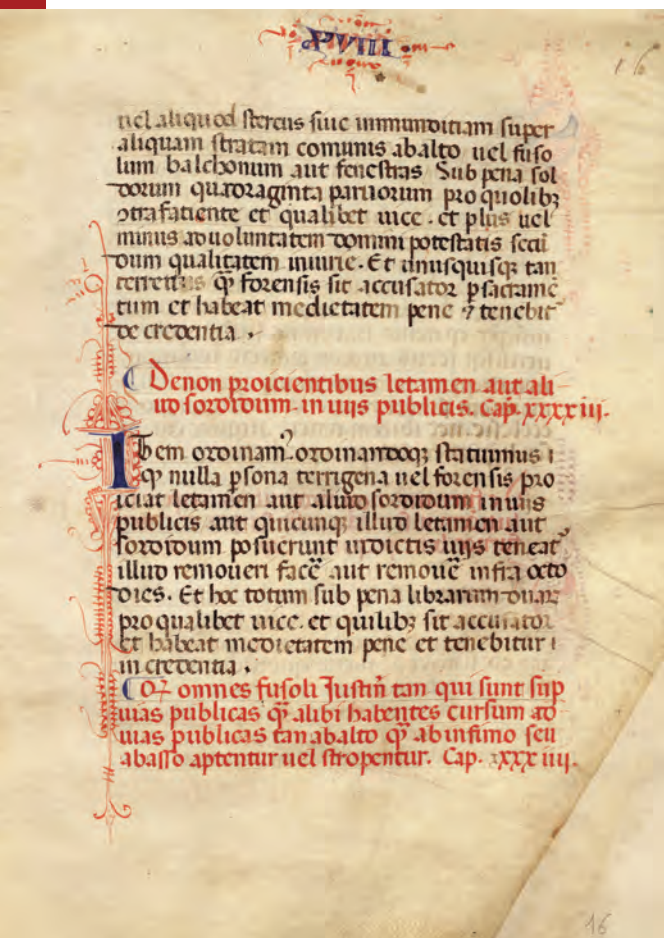 XVIII
16
uel aliquod stercus siue inmunditiam super
aliquam stratam comunis ab alto uel fuso
lum balchonum aut fenestras Sub pena sol
dorum quatoraginta paruorum pro quolibꝫ
ɔtrafatiente et qualibet uice. et plus uel
minus ad uoluntatem domini potestatis secū
dum qualitatem iniurie. Et unusquisqꝫ tan
terrenus qꝫ forensis sit accusator p sacramē
tum et habeat medietatem pene ⁊ tenebit᷑
de credentia.
De non proicientibus letamen aut ali
ud sordidum in uijs publicis. Cap. xxxxiii.
Item ordinam᷑. ordinandoqꝫ statuimus
qꝫ nulla psona terrigena uel forensis pro
iciat letamen aut aliud sordidum in uijs
publicis aut quicunqꝫ illud letamen aut
sordidum posuerunt in dictis uijs teneat᷑
illud remoueri facē aut remouē infra octo
dies. Et hoc totum sub pena librarum duar
pro qualibet uice. et quilibꝫ sit accusator
et habeat medietatem pene et tenebitur
in credentia.
Qꝫ omnes fusoli Justiñ tan qui sunt sup
uias publicas qꝫ alibi habentes cursum ad
uias publicas tan ab alto qꝫ ab infimo seu
abasso aptentur uel stropentur. Cap. xxxx iiij.
16